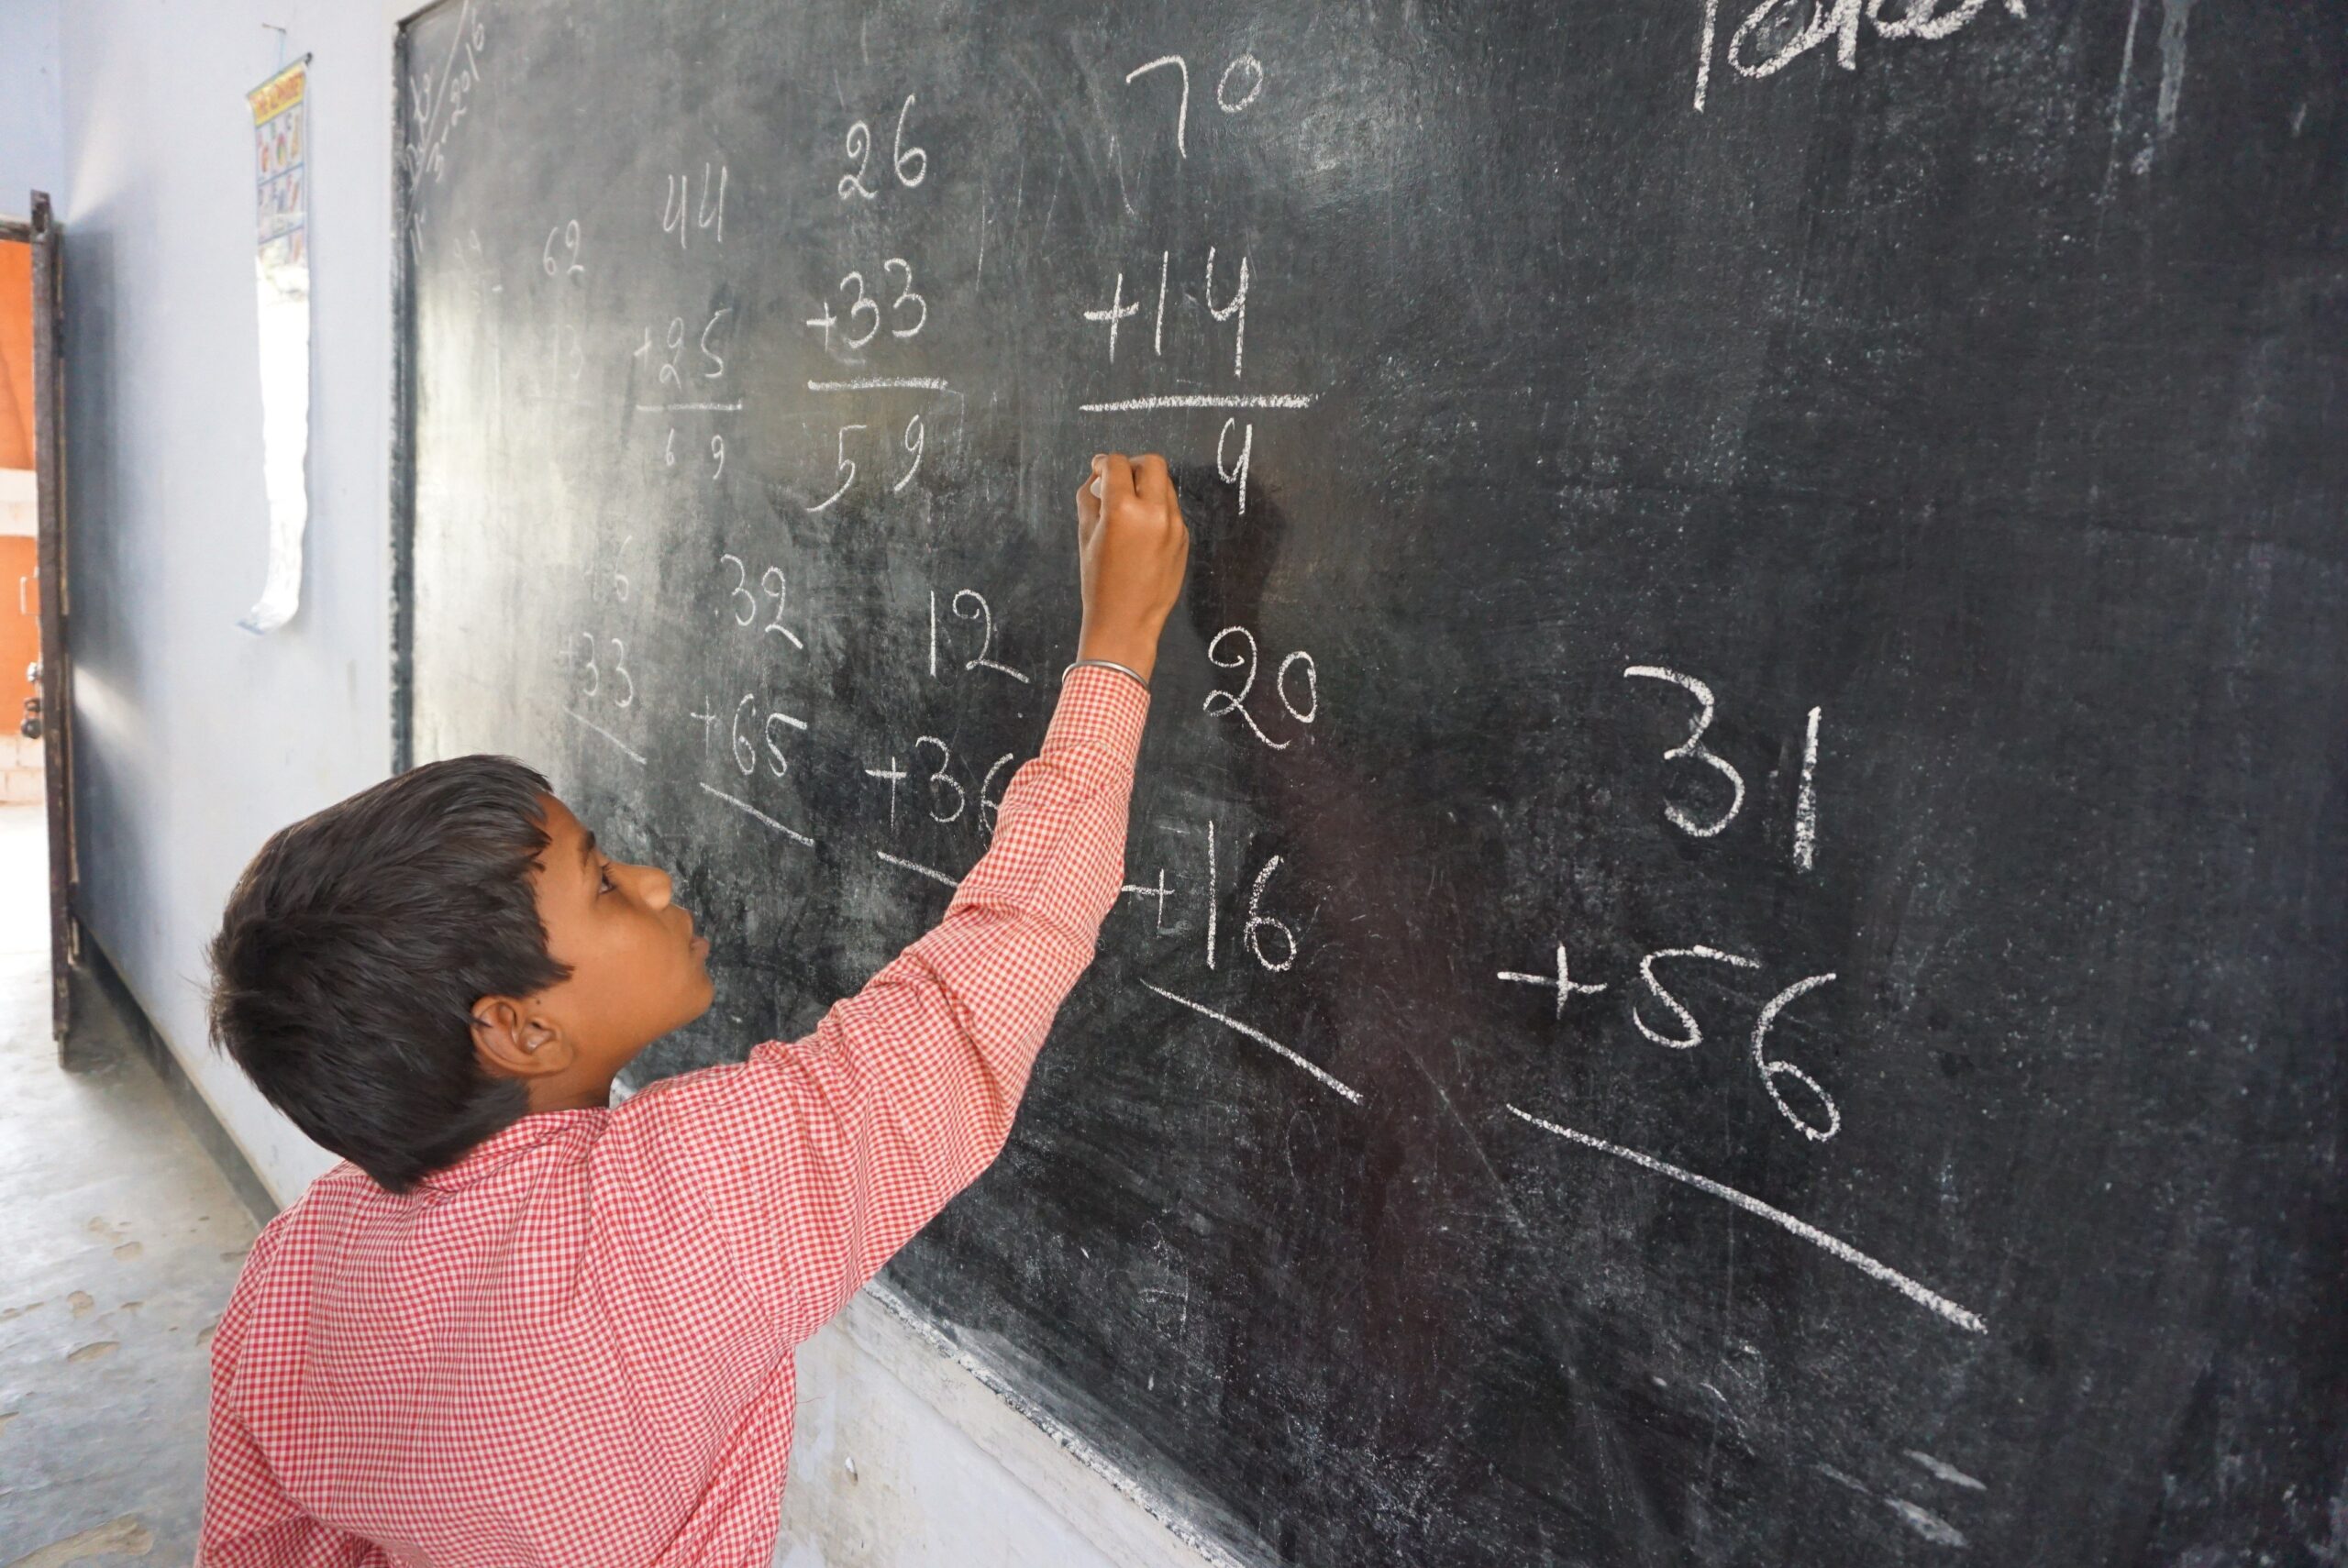 2016
62
13
44
+25
69
26
+33
59
70
+14
4
+33
32
+65
12
+36
20
+16
31
+56